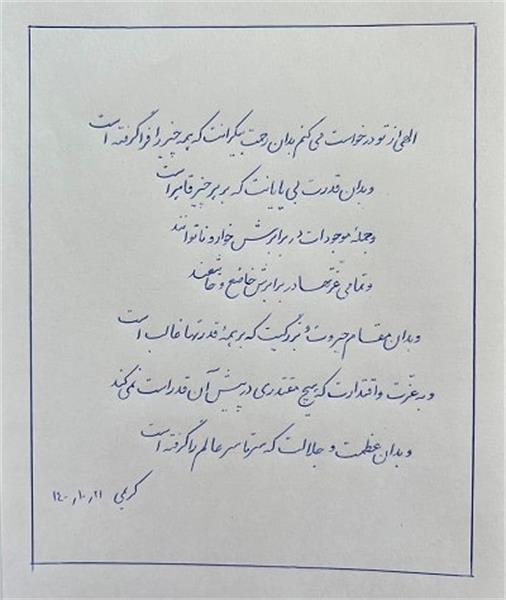 الهی از تو درخواست می کنم بدان رحمت بیکرانت که همه چیز را فرا گرفته است
و بدان قدرت بی پایانت که بر هر چیز قاهر است
و جملهٔ موجودات در برابرش خوار و ناتوانند
و تمامی عزّتها در برابرش خاضع و خاشعند
و بدان مقام جبروت و بزرگیت که بر همهٔ قدرتها غالب است
و به عزّت و اقتدارت که هیچ مقتدری در پیش آن قد راست نمی کند
و بدان عظمت و جلالت که سرتاسر عالم را گرفته است
کریمی ۱۴۰۰٫۱۰٫۲۱